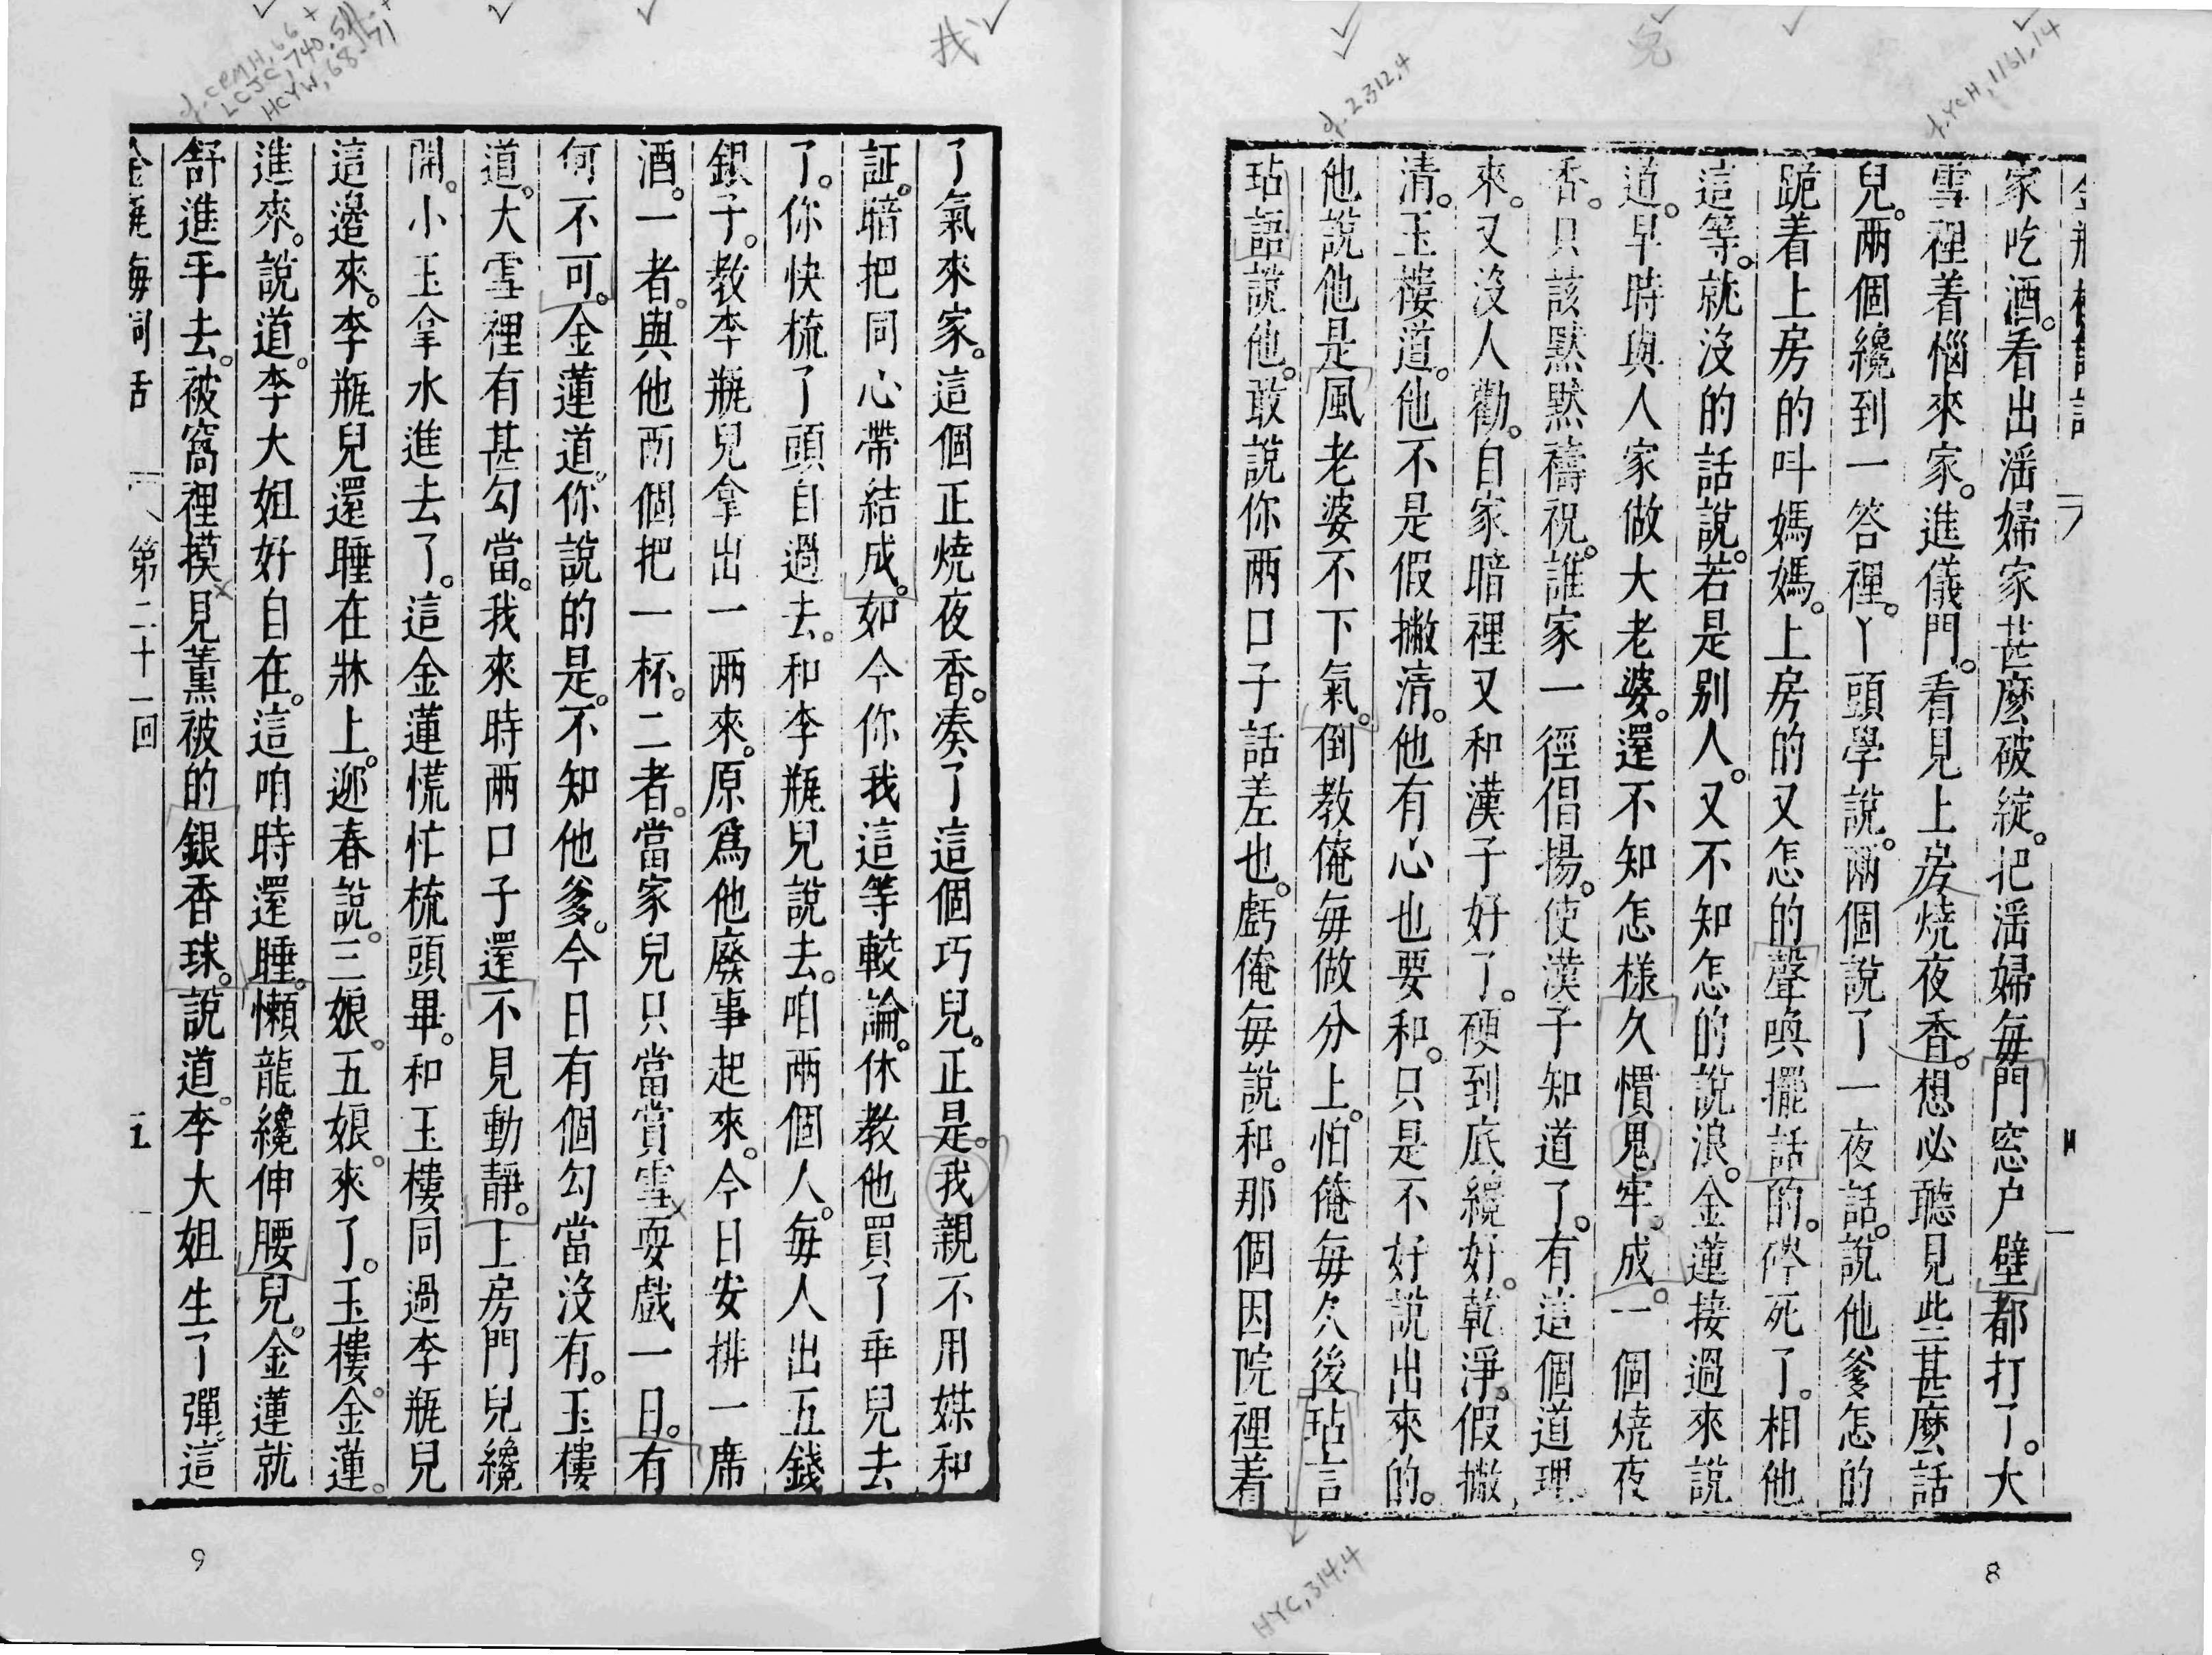 家吃酒。看出滛婦家甚麼破綻。把滛婦每門窓户壁都打了。大
雪裡着惱來家。進儀門。看見上房燒夜香。想必聽見些甚麼話
兒。兩個纔到一答裡。丫頭學說。兩個說了一夜話。說他爹怎的
跪着上房的呌媽媽。上房的又怎的聲喚擺話的。硶死了。相他
這等。就沒的話說。若是别人。又不知怎的說浪。金蓮接過來說
道。早時與人家做大老婆。還不知怎樣久慣鬼牢。成一個燒夜
香。只該默默禱祝。誰家一徑倡揚。使漢子知道了。有這個道理。
來。又沒人勸。自家暗裡又和漢子好了。硬到底纔好。乾淨。假撇
清。玉樓道。他不是假撇清。他有心也要和。只是不好說出來的。
他說他是風老婆不下氣。倒教俺每做分上。怕俺每久後玷言
玷語說他。敢說你兩口子話差也。虧俺每說和。那個因院裡着
8
了氣來家。這個正燒夜香。凑了這個巧兒。正是。我親不用媒和
証。暗把同心帶結成。如今你我這等較論。休教他買了乖兒去
了。你快梳了頭自過去。和李瓶兒說去。咱兩個人。每人出五錢
銀子。教李瓶兒拿出一兩來。原爲他廢事起來。今日安排一席
酒。一者。與他兩個把一杯。二者。當家兒只當賞雪耍戲一日。有
何不可。金蓮道。你說的是。不知他爹。今日有個勾當沒有。玉樓
道。大雪裡有甚勾當。我來時兩口子還不見動靜。上房門兒纔
開。小玉拿水進去了。這金蓮慌忙梳頭畢。和玉樓同過李瓶兒
這邉來。李瓶兒還睡在牀上。迎春說。三娘。五娘。來了。玉樓。金蓮。
進來。說道。李大姐好自在。這咱時還睡。懶龍纔伸腰兒。金蓮就
舒進手去。被窩裡摸見薰被的銀香球。說道。李大姐生了彈。這
第二十一回
9
我
HYC, 314.4